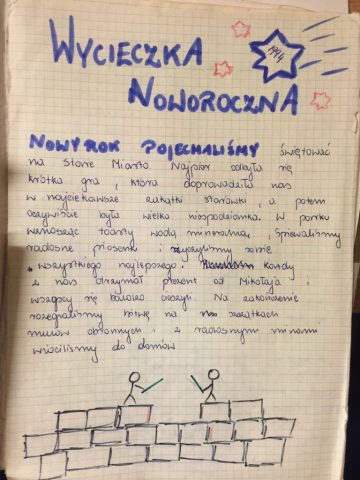 WYCIECZKA
1994
NOWOROCZNA
NOWY ROK POJECHALIŚMY świętować
na Stare Miasto. Najpierw odbyła się
krótka gra, która doprowadziła nas
w najciekawsze zakątki starówki, a potem
oczywiście była wielka niespodzianka. W parku
wznosząc toasty wodą mineralną, śpiewaliśmy
radosne piosenki i życzyliśmy sobie
wszystkiego najlepszego. każdy
z nas otrzymał prezent od Mikołaja i
wszyscy się bardzo cieszyli. Na zakończenie
rozegraliśmy bitwę na szczątkach
murów obronnych i z radosnymi minami
wróciliśmy do domów